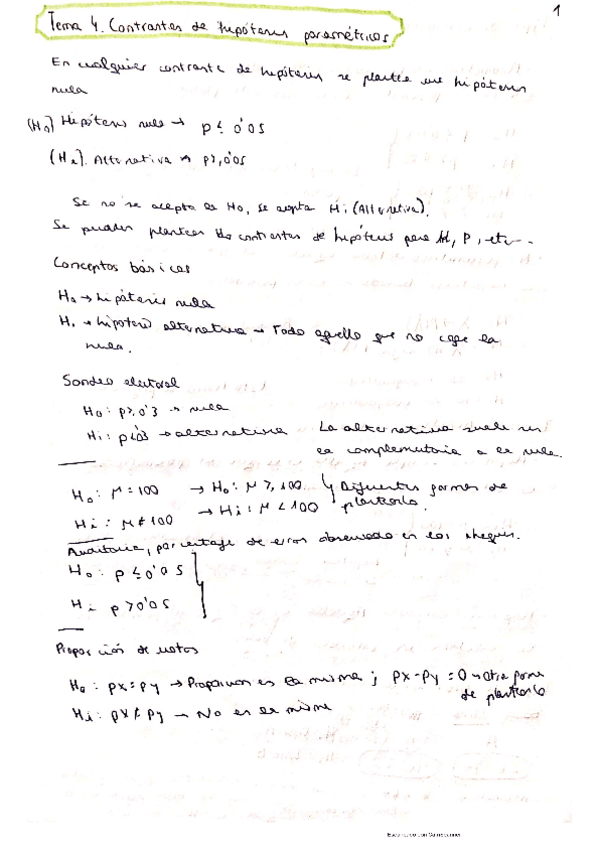 1
Tema 4. Contrastes de hipótesis paramétricos.
En cualquier contraste de hipótesis se plantea una hipótesis
nula
(H0) Hipótesis nula → p ≤ 0'05
(H1). Alternativa → p>,0'05
Se no se acepta es H0, se acepta Hi (Alternativa).
Se pueden plantear los contrastes de hipótesis para M, P, etc...
Conceptos básicos
H0 → hipótesis nula
H1 → hipótesis alternativa → Todo aquello que no cope la
nula.
Sondeo electoral
H0: p>,0'3 → nula
Hi: p<0'3 → alternativa La alternativa suele ser
la complementaria a la nula.
H0: M=100 → H0: M>,100 Diferentes formas de
Hi: M≠100 → Hi: M<100 plantearlo.
Auditoria, porcentaje de error observado en los cheques.
H0: p ≤ 0'05
Hi p >0'05
Proporción de votos
H0: px=py → Proporcion es la misma ; px-py =0 → otra forma
de plantearlo
Hi: px≠py → No es la misma
Escaneado con CamScanner